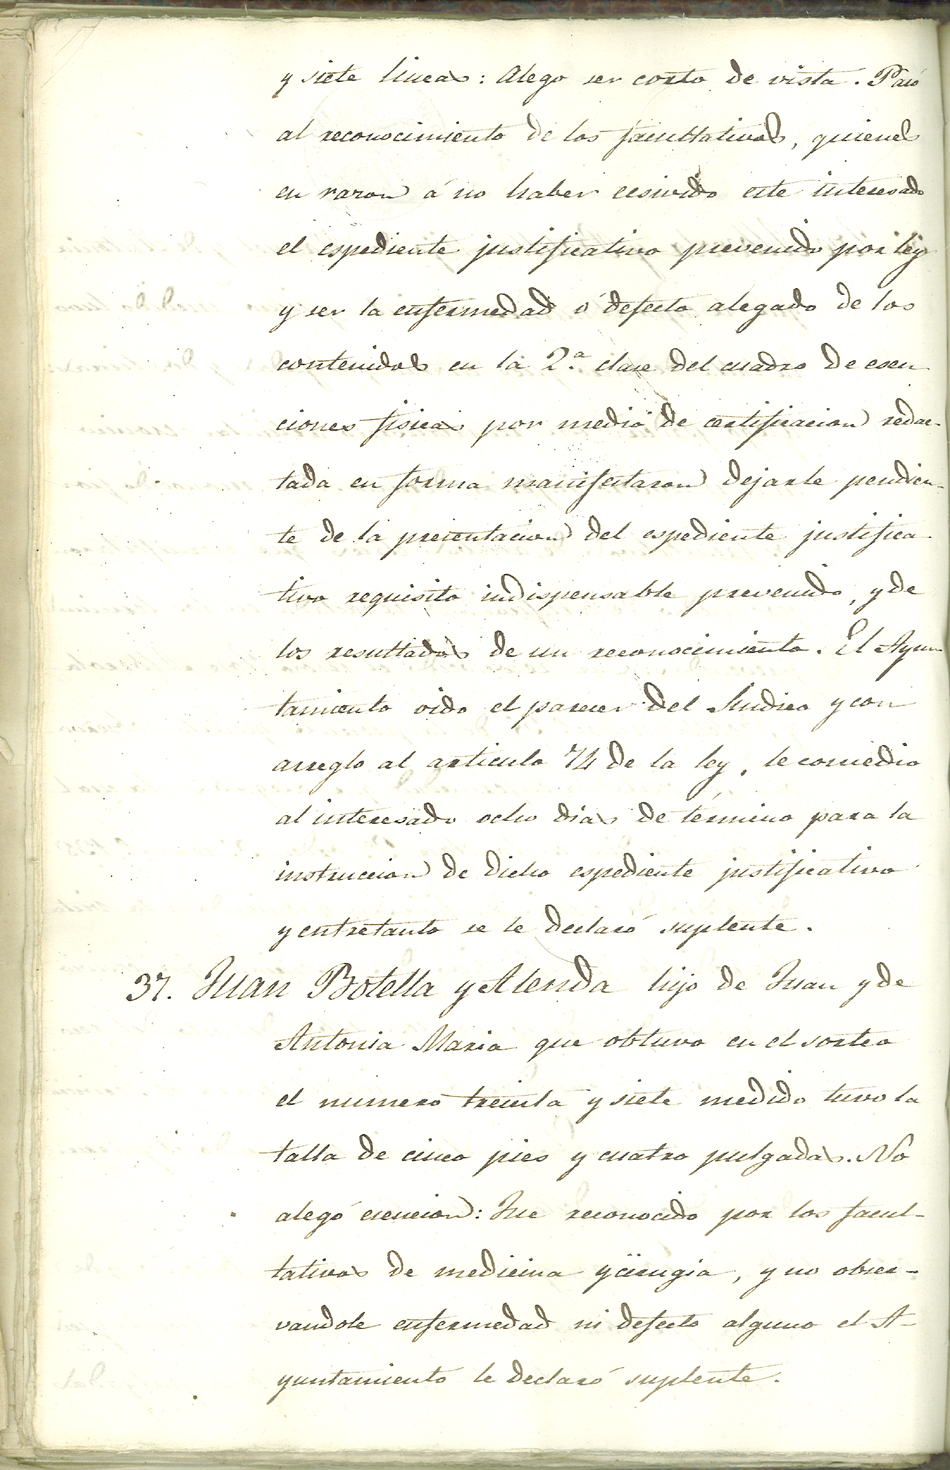 y siete lineas: Alego ser corto de vista. Pasó
al reconocimiento de los facultativos, quienes
en razon á no haber ecsivido este interesado
el espediente justificativo prevenido por ley
y ser la enfermedad ó defecto alegado de los
contenidos en la 2.ª clase del cuadro de esen
ciones fisicas por medio de certificacion redac-
tada en forma manifestaron dejarle pendien-
te de la presentacion del espediente justifica-
tivo requisito indispensable prevenido, y de
los resultados de un reconocimiento. El Ayun
tamiento oido el parecer del Sindico y con
arreglo al articulo 74 de la ley, le concedio
al interesado ocho dias de término para la
instruccion de dicho espediente justificativo
y entretanto se le declaró suplente.
37. Juan Botella y Alenda hijo de Juan y de
Antonia Maria que obtuvo en el sorteo
el numero treinta y siete medido tuvo la
talla de cinco pies y cuatro pulgadas. No
alegó esencion: Fue reconocido por los facul-
tativos de medicina y cirugia, y no obser-
vandole enfermedad ni defecto alguno el A-
yuntamiento le declaró suplente.